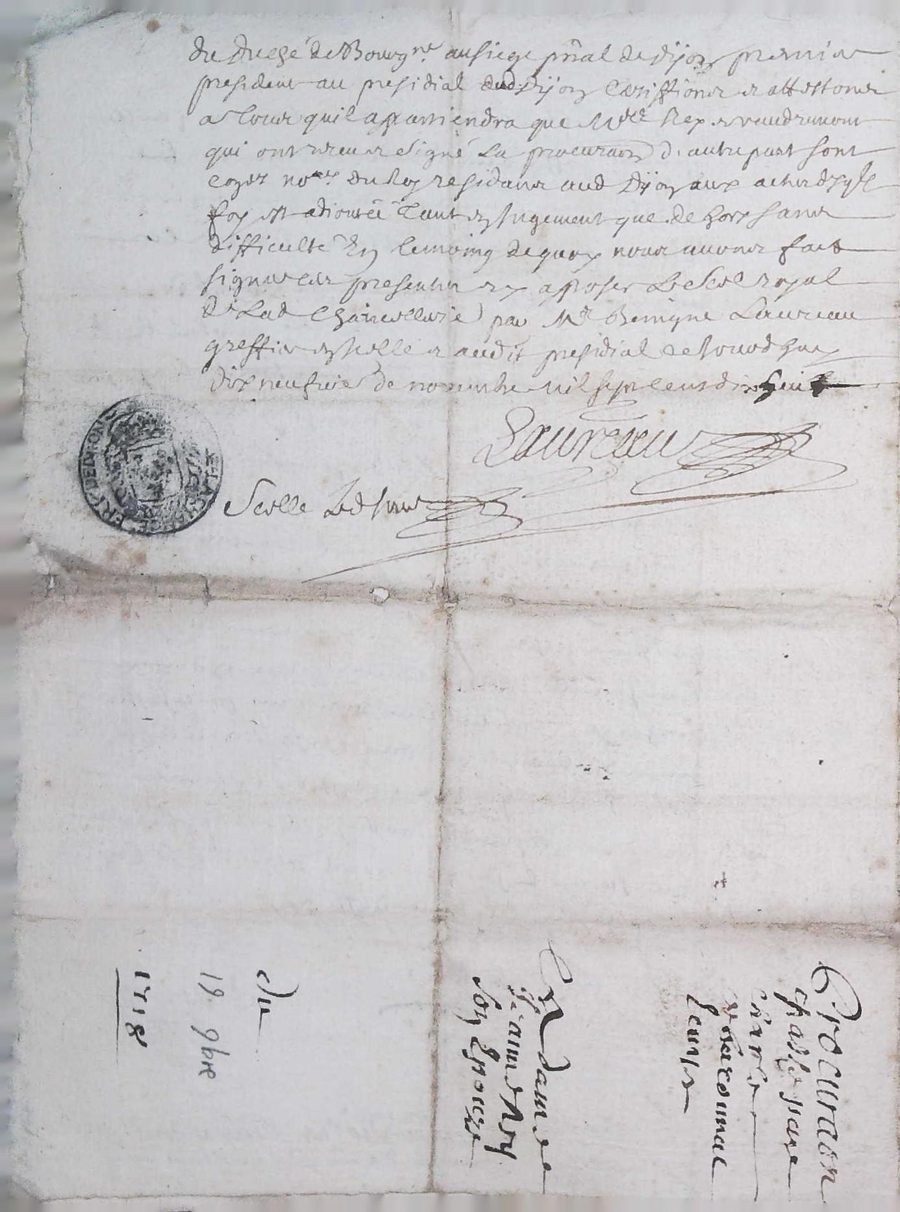 du duché de Bourgne au siege pñal de dijon premier
president au presidial dud dijon certiffions et attestons
a tous quil apartiendra que Mes Rey et vaudremont
qui ont receu et signé La procuraõn d'autre part sont
nores du Roy residans aud dijon aux actes desqls
foy est adioutée tant en Jugement que dehors sans
difficulté En temoing de quoy nous avons fait
signer ces presentes et y aposer Le Scel royal
de Lad Chancellerie par Me Benigne Laureau
greffier en icelle et audit presidial ce jourdhuy
dix neufvie de novembre mil sept cens dix huit
Laureau
Scellé Led jour
Procuraõn
passé par
Cardinal
En dame
Jeanne Rey
Son Epouze
du
19 9bre
1718